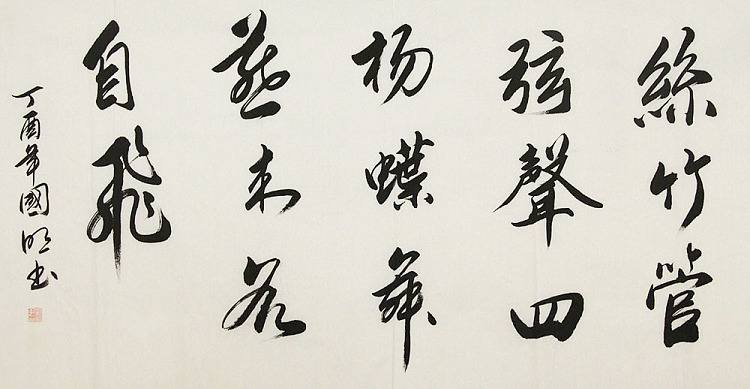 絲竹管
弦聲四
杨蝶舞
燕来
自飛
丁酉年國明书